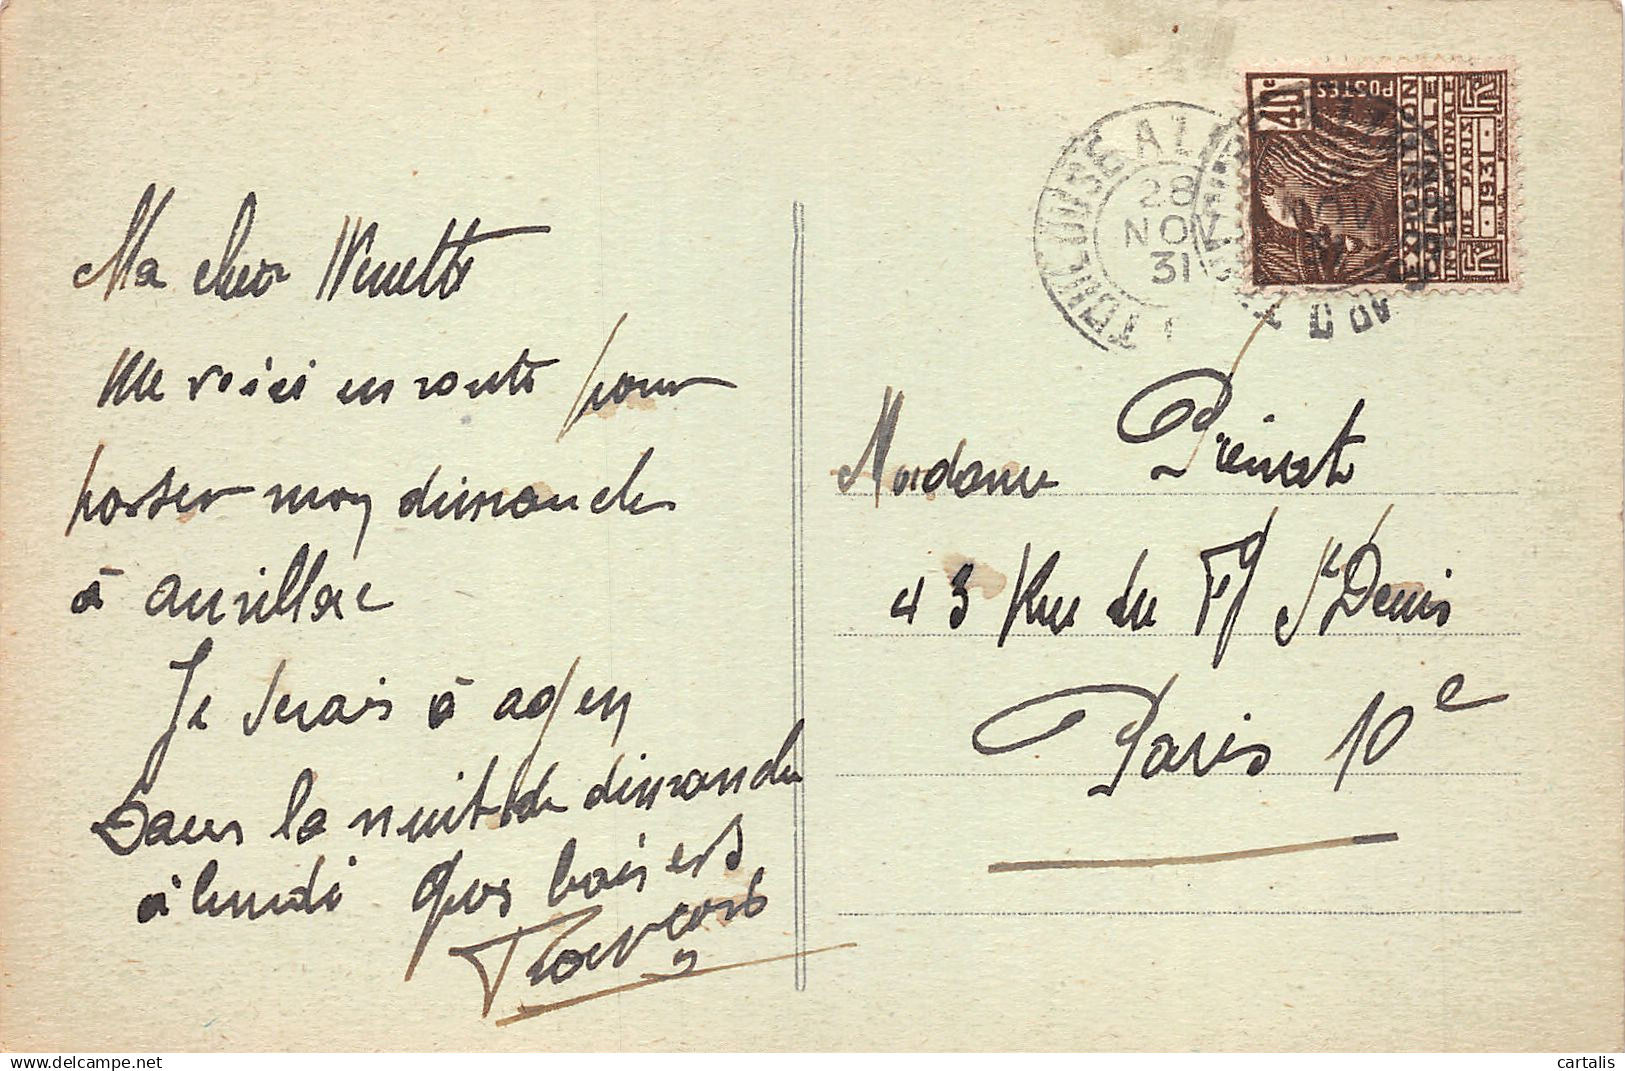 Ma cher Nenette
Me voici en route pour
passer mon dimanche
à aurillac
Je serais à agen
Dans la nuit de dimanche
à lundi Gros baisers
François
TOULOUSE A
28
NOV
31
40c
POSTES
EXPOSITION
COLONIALE
INTERNATIONALE
DE PARIS
1931
Madame
43 Rue du Fg St Denis
Paris 10e
cartalis